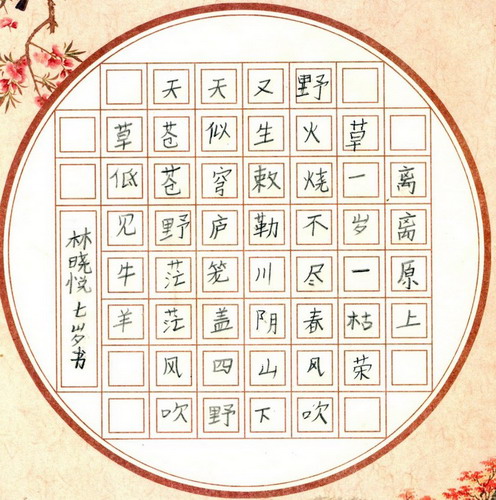 离离原上
草一岁一枯荣
野火烧不尽春风吹
又生敕勒川阴山下
天似穹庐笼盖四野
天苍苍野茫茫风吹
草低见牛羊
林晓悦七岁书